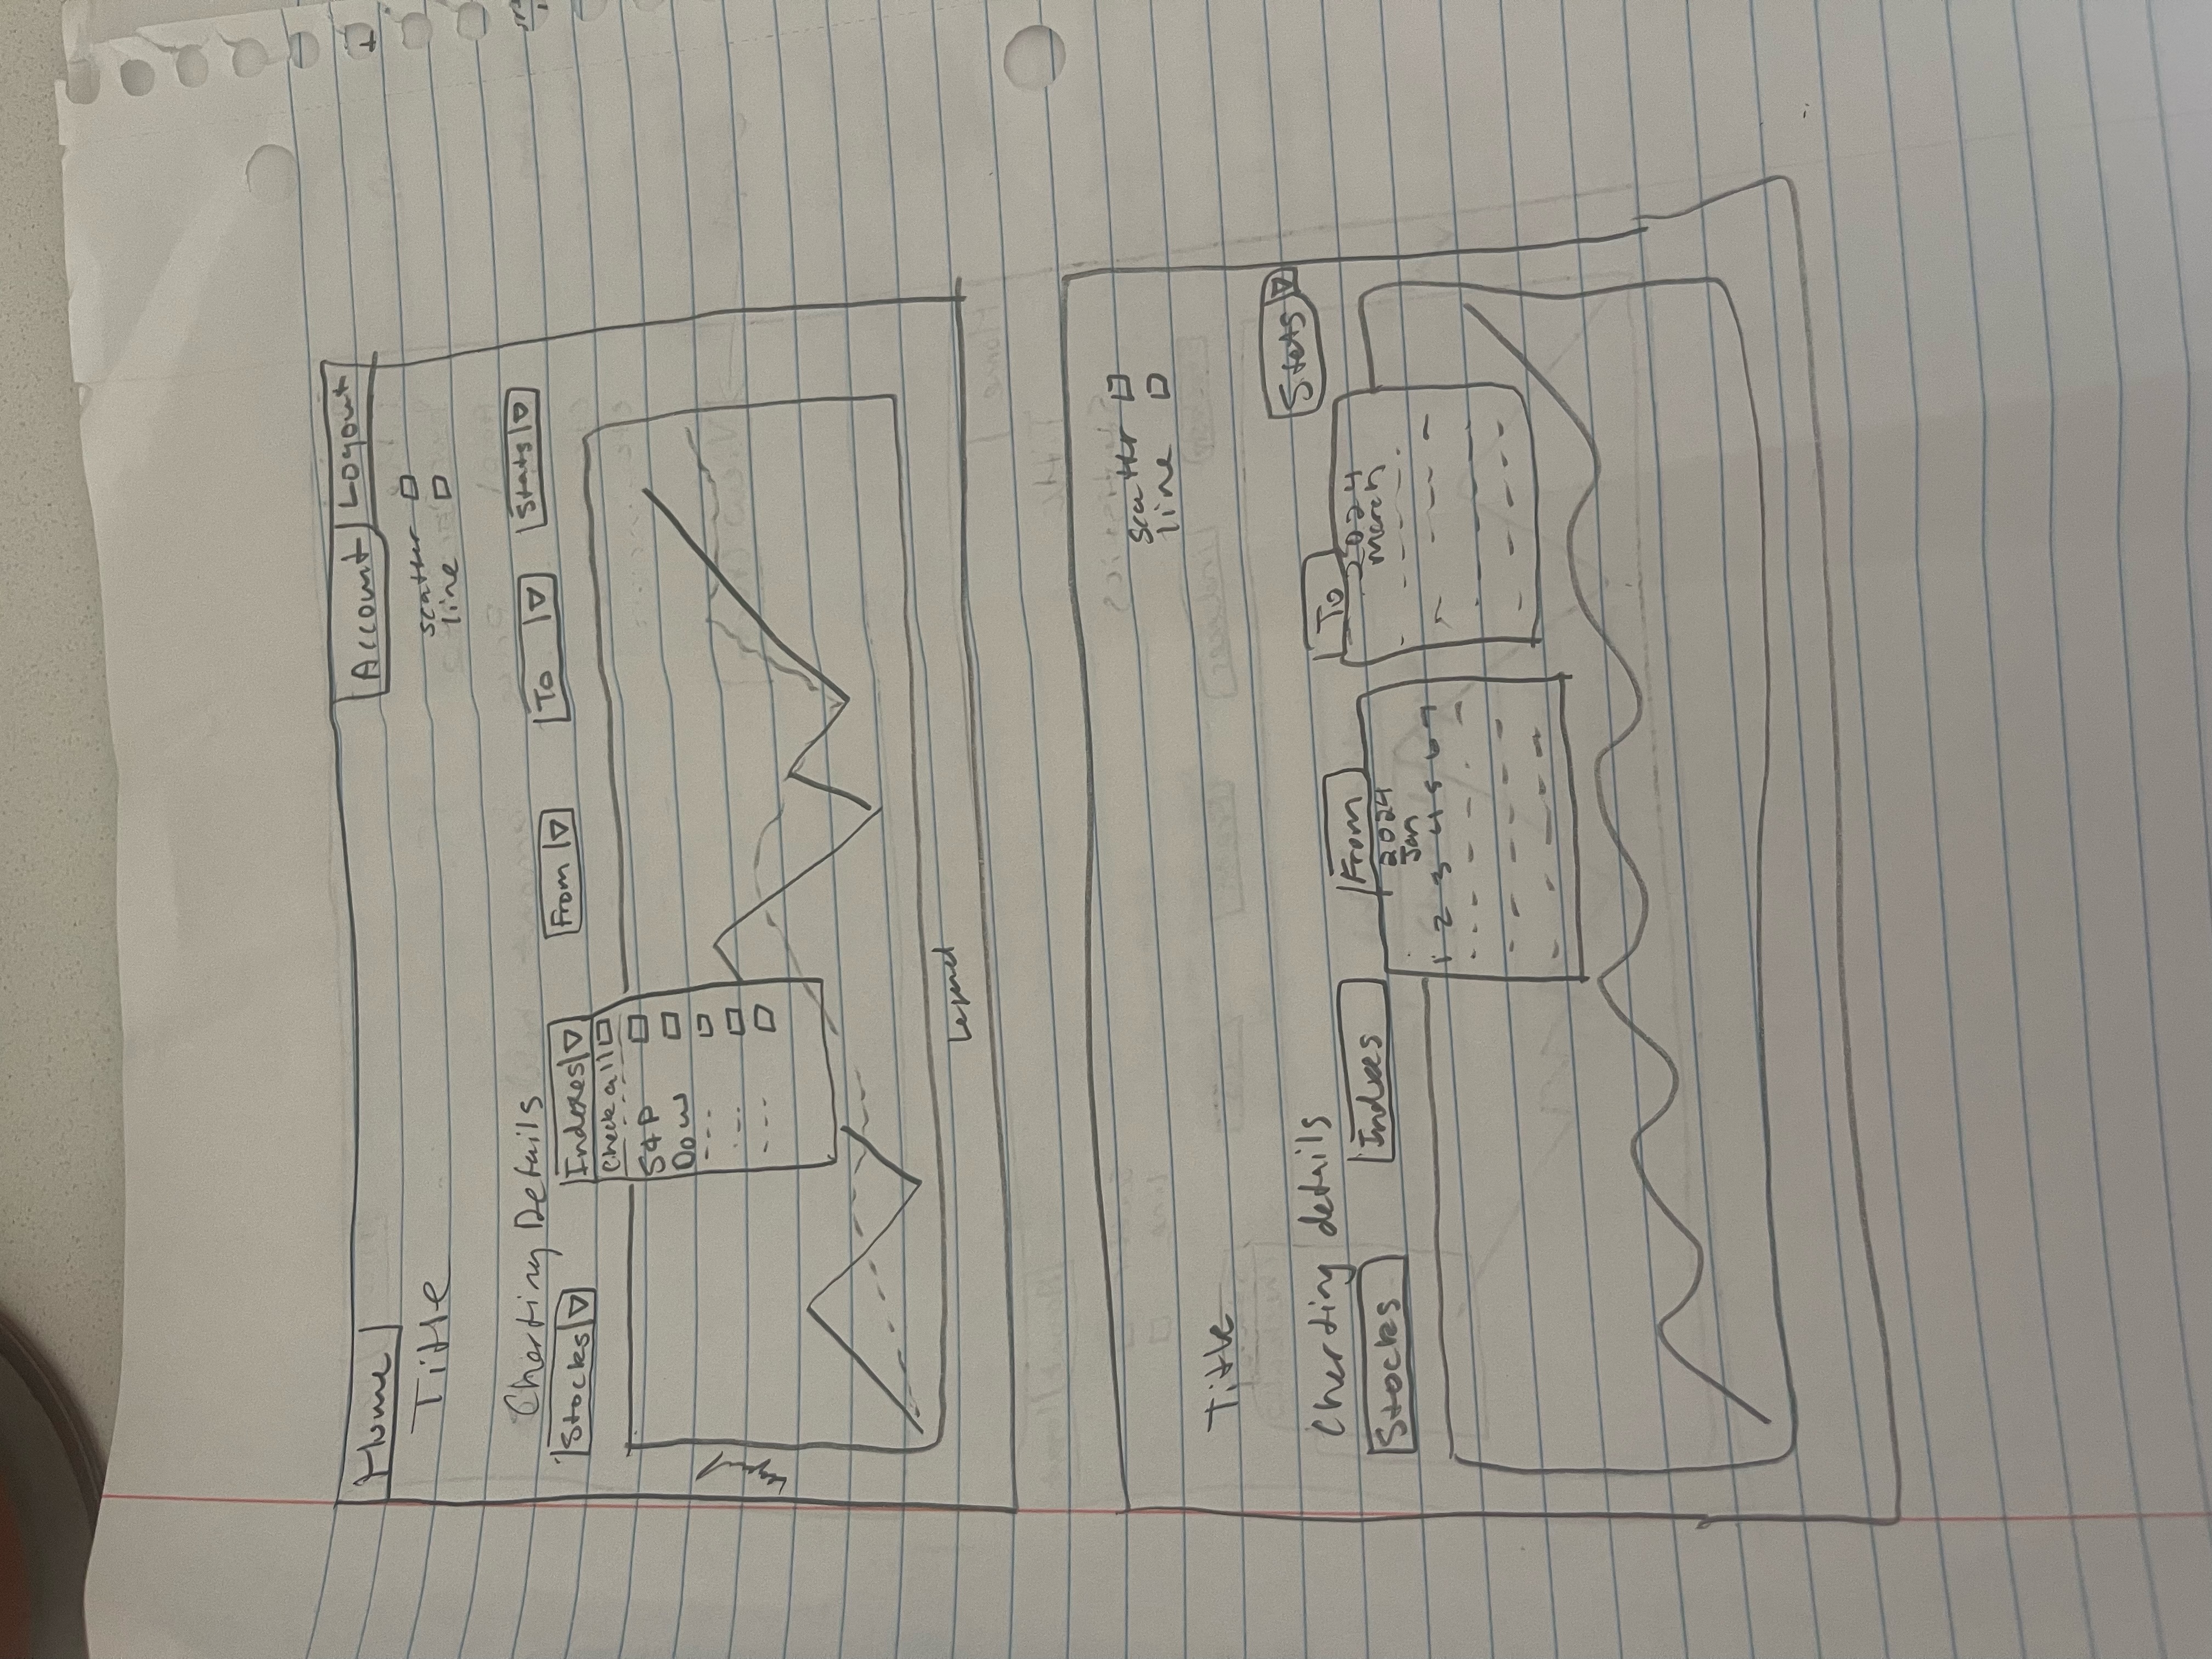 Home
Account Logout
Title
scatter
line
Charting Details
Stocks Indexes From To Stats
Check all
S&P
Dow
Legend
Legend
scatter
line
Title
Stats
Charting details
Stocks Indexes From To
2024
Jan
1 2 3 4 5 6 7
2024
March